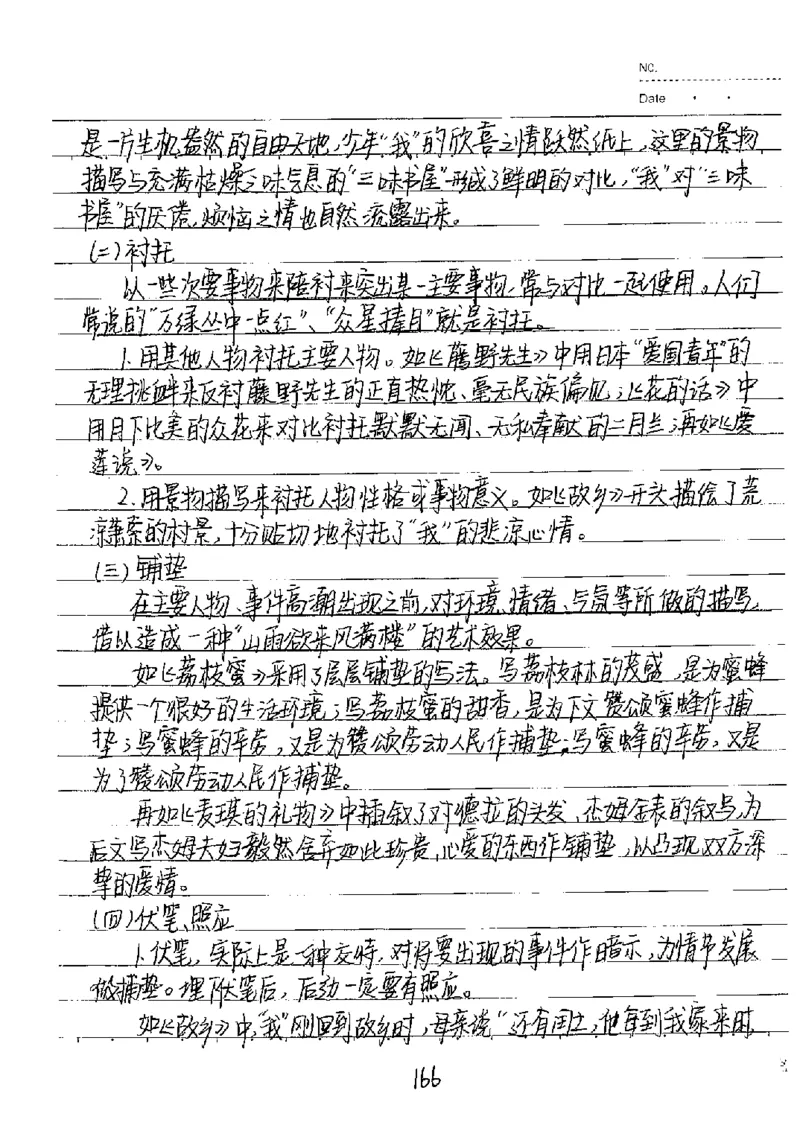 NO.
Date
是一片生机盎然的自由天地,少年“我”的欣喜之情跃然纸上,这里的景物
描写与充满枯燥乏味气息的“三味书屋”形成了鲜明的对比,“我”对“三味
书屋”的厌倦,烦恼之情也自然流露出来。
(二)衬托
以一些次要事物来陪衬来突出某一主要事物,常与对比一起使用。人们
常说的“万绿丛中一点红”、“众星捧月”就是衬托。
1.用其他人物衬托主要人物。如《藤野先生》中用日本“爱国青年”的
无理挑衅来反衬藤野先生的正直热忱、毫无民族偏见;《花的话》中
用月下比美的众花来对比衬托默默无闻、无私奉献的二月兰;再如《爱
莲说》。
2.用景物描写来衬托人物性格或事物意义。如《故乡》开头描绘了荒
凉萧索的村景,十分贴切地衬托了“我”的悲凉心情。
(三)铺垫
在主要人物、事件高潮出现之前,对环境、情绪、气氛等所做的描写,
借以造成一种“山雨欲来风满楼”的艺术效果。
如《荔枝蜜》采用了层层铺垫的写法。写荔枝林的茂盛,是为蜜蜂
提供一个很好的生活环境;写荔枝蜜的甜香,是为下文赞颂蜜蜂作捕
垫;写蜜蜂的辛劳,又是为赞颂劳动人民作捕垫;写蜜蜂的辛劳,又是
为了赞颂劳动人民作捕垫。
再如《麦琪的礼物》中插叙了对德拉的头发,杰姆金表的叙写,为
后文写杰姆夫妇毅然舍弃如此珍贵,心爱的东西作铺垫,以凸现双方深
挚的爱情。
(四)伏笔、照应
1.伏笔,实际上是一种交待,对将要出现的事件作暗示,为情节发展
做捕垫。埋下伏笔后,后边一定要有照应。
如《故乡》中,“我”刚回到故乡时,母亲说“还有闰土,他每到我家来时,
166